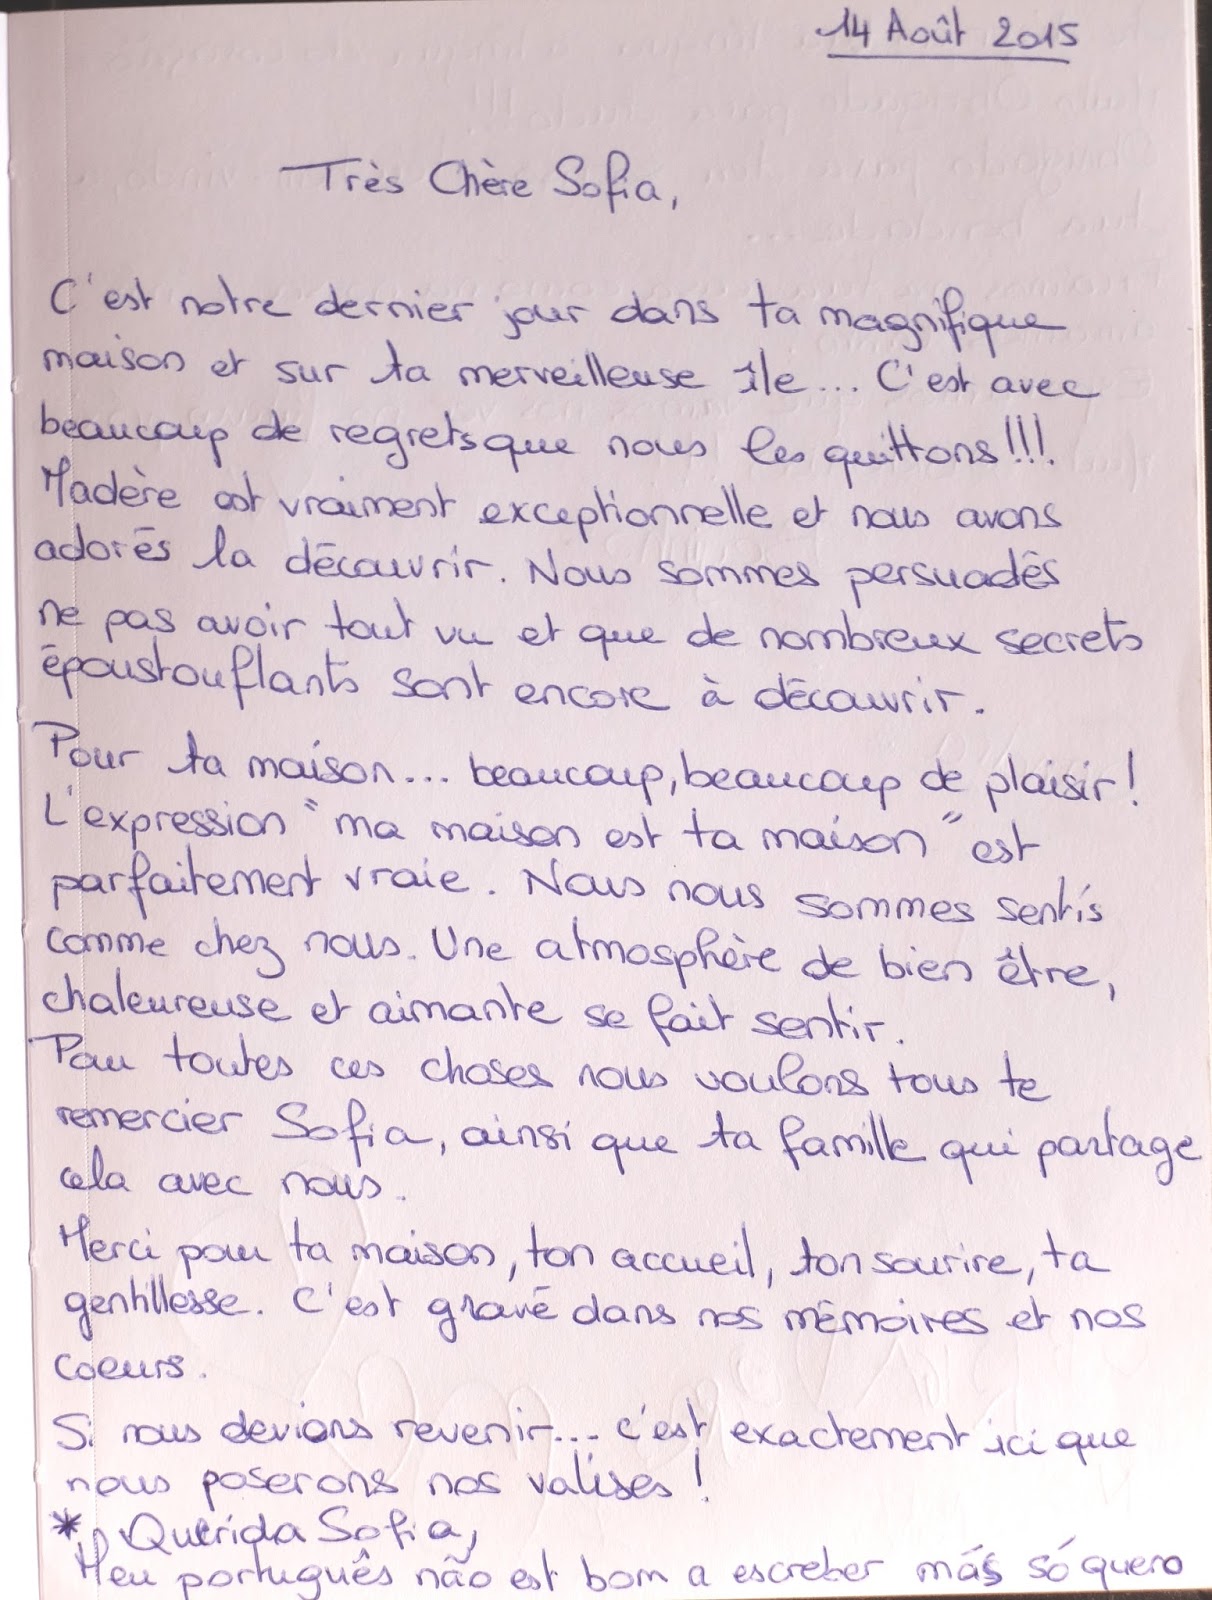 14 Août 2015
Très Chère Sofia,
C'est notre dernier jour dans ta magnifique
maison et sur ta merveilleuse île... C'est avec
beaucoup de regrets que nous les quittons!!!
Madère est vraiment exceptionnelle et nous avons
adorés la découvrir. Nous sommes persuadés
ne pas avoir tout vu et que de nombreux secrets
époustouflants sont encore à découvrir.
Pour ta maison... beaucoup, beaucoup de plaisir!
L'expression "ma maison est ta maison" est
parfaitement vraie. Nous nous sommes sentis
comme chez nous. Une atmosphère de bien être,
chaleureuse et aimante se fait sentir.
Pour toutes ces choses nous voulons tous te
remercier Sofia, ainsi que ta famille qui partage
cela avec nous.
Merci pour ta maison, ton accueil, ton sourire, ta
gentillesse. C'est gravé dans nos mémoires et nos
coeurs.
Si nous devions revenir... c'est exactement ici que
nous poserons nos valises!
* Querida Sofia,
Meu português não est bom a escreber más só quero